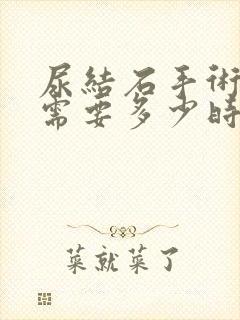 尿結石手術
需要多少時
菜就菜了